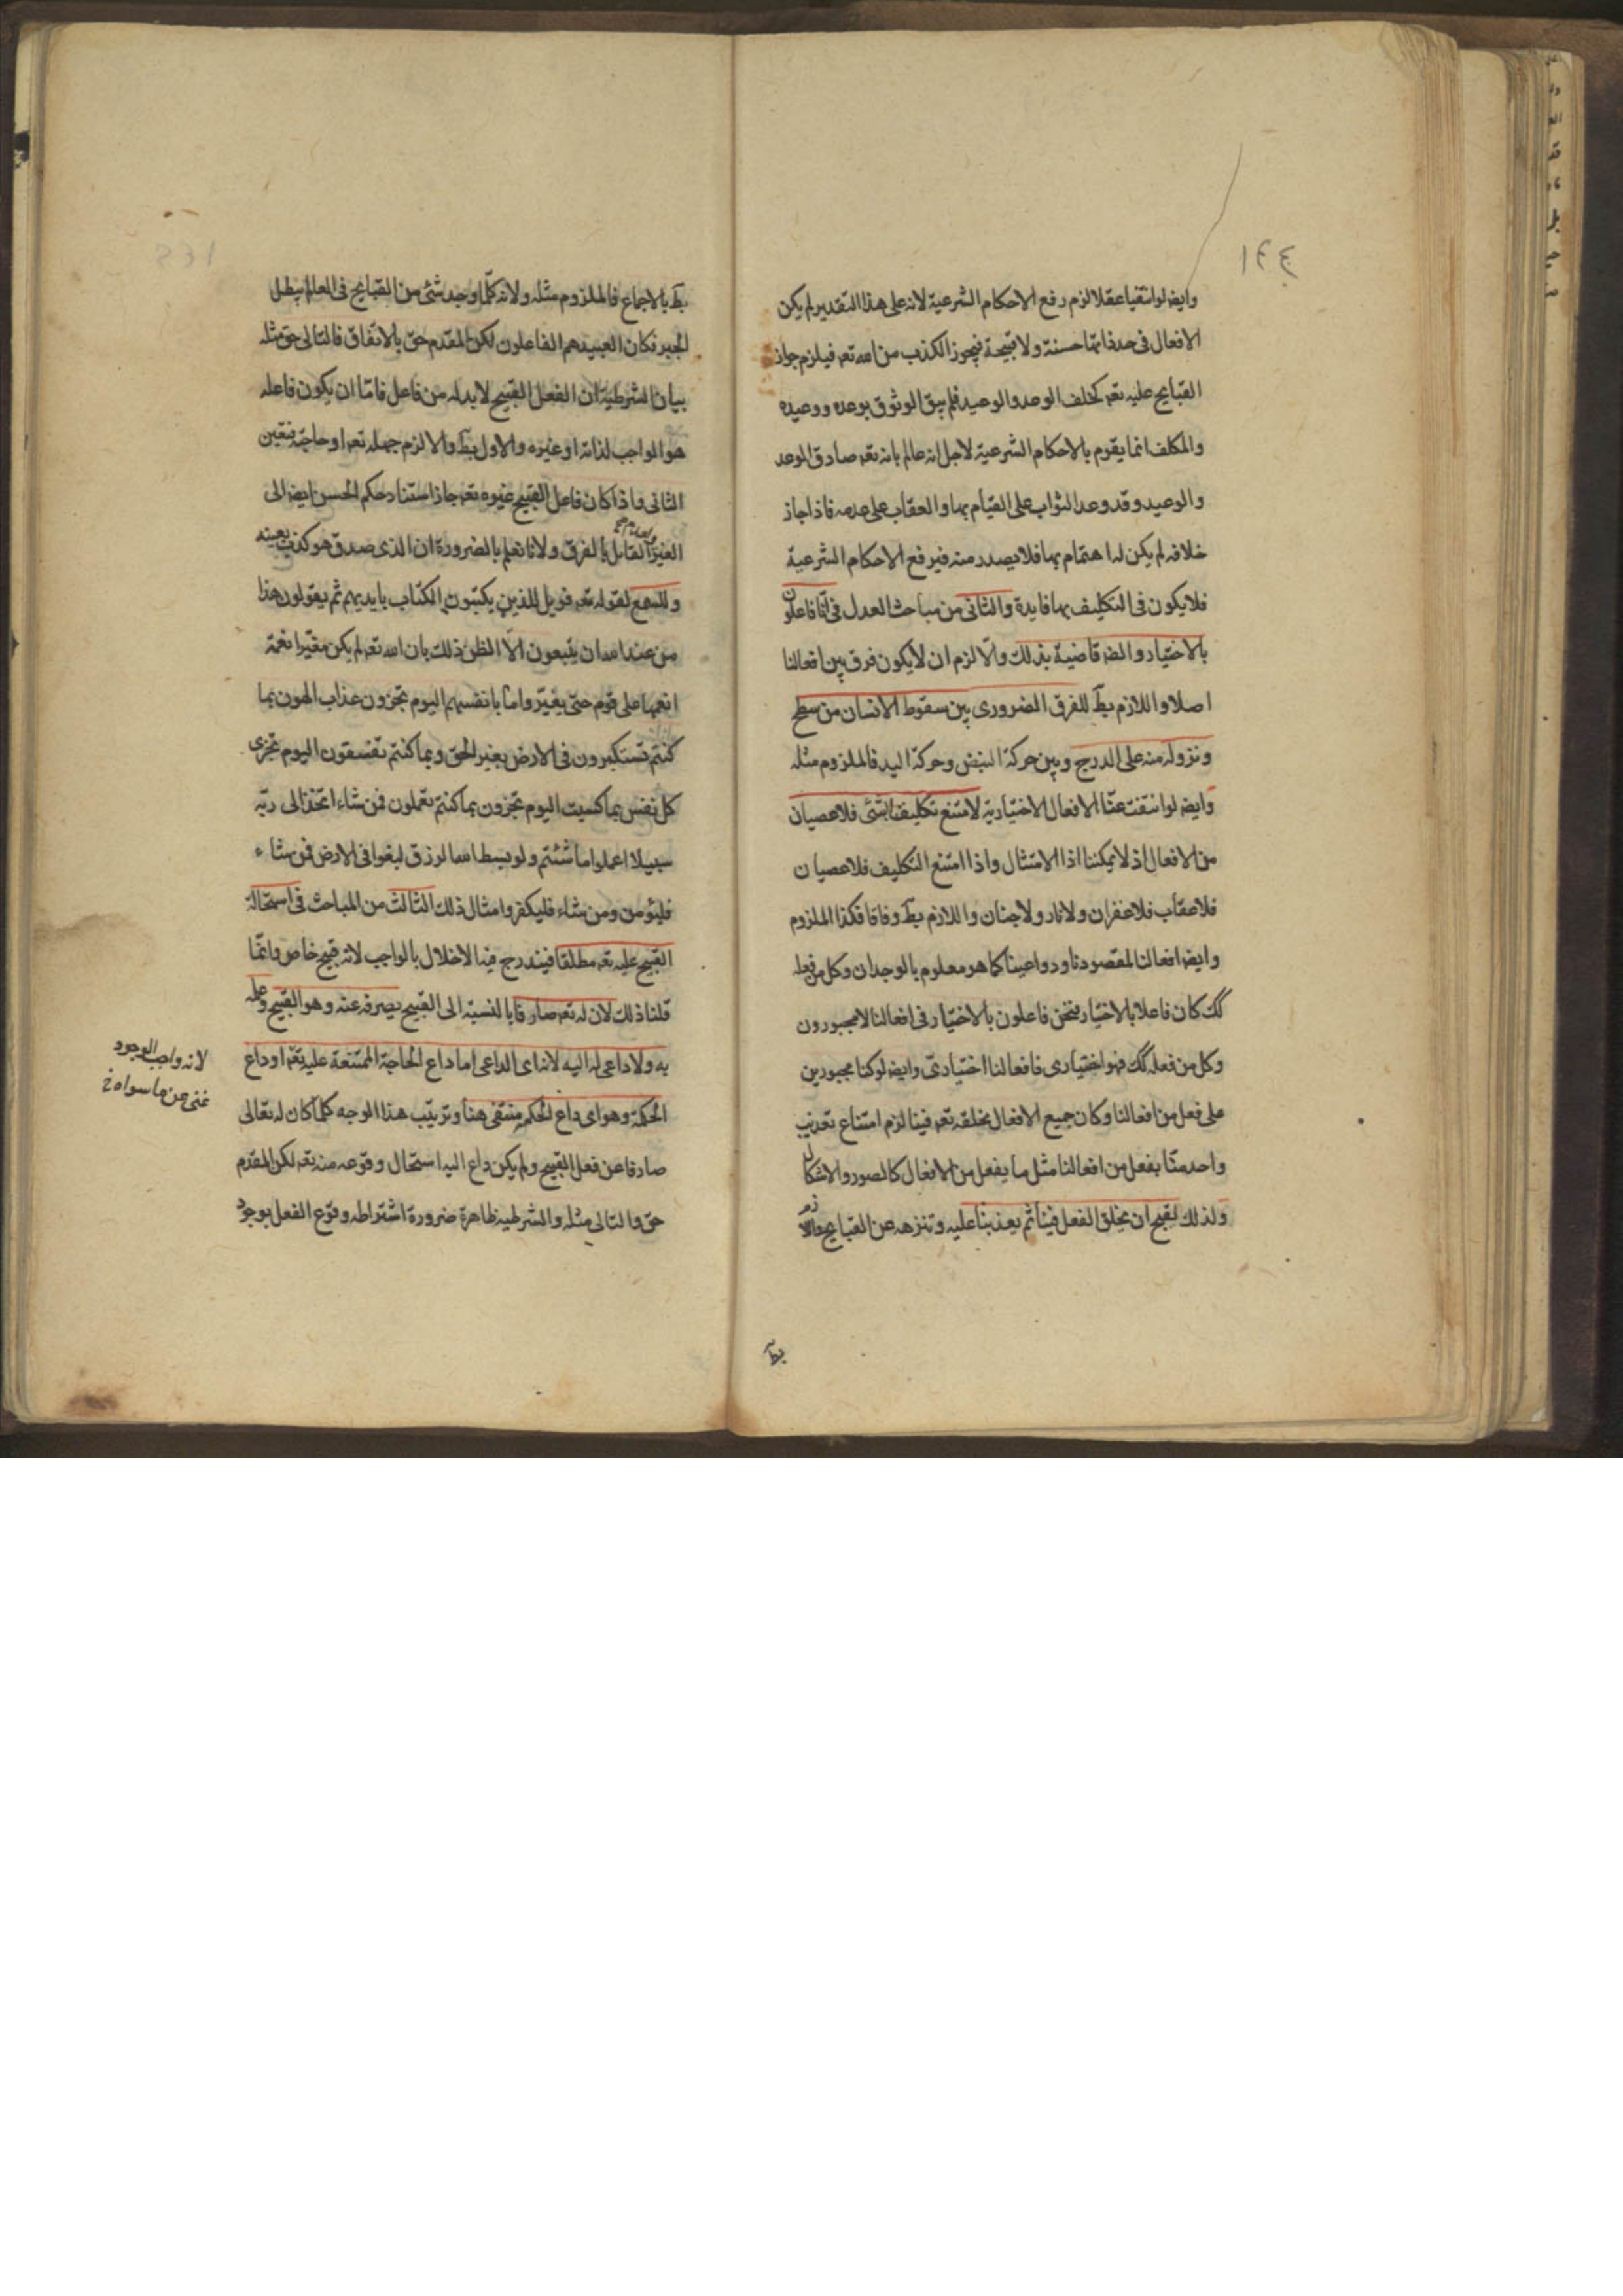 ١٤٤
وايضه لو انتفيا عقلا لزم رفع الاحكام الشرعية لانه على هذا التقدير لم يكن
الافعال فى حد ذاتها حسنة ولا قبيحة فيجوز الكذب من الله تعه فيلزم جواز
القبايح عليه تعه كخلف الوعد والوعيد فلم يبق الوثوق بوعده ووعيده
والمكلف انما يقوم بالاحكام الشرعية لاجل انه عالم بانه تعه صادق الوعد
والوعيد وقد وعد الثواب على القيام بها والعقاب على عدمه فاذا جاز
خلافه لم يكن له اهتمام بها فلا يصدر منه فيرفع الاحكام الشرعية
فلا يكون فى التكليف بها فايدة والثانى من مباحث العدل فى انّا فاعلون
بالاختيار والضه قاضية بذلك والّا لزم ان لا يكون فرق بين افعالنا
اصلا واللازم بط للفرق الضرورى بين سقوط الانسان من سطح
ونزوله منه على الدرج وبين حركة النبض وحركة اليد فالملزوم مثله
وايضه لو انتفت عنّا الافعال الاختيارية لامتنع تكليفنا بشئ فلا عصيان
من الافعال اذ لا يمكننا اذا الامتثال واذا امتنع التكليف فلا عصيان
فلا عقاب فلا غفران ولا نار ولا جنان واللازم بط وفاقا فكذا الملزوم
وايضه افعالنا لمقصودنا ودواعينا كما هو معلوم بالوجدان وكل من فعله
كك كان فاعلا بالاختيار فنحن فاعلون بالاختيار فى افعالنا لا مجبورون
وكل من فعله كك فهو اختيارى فافعالنا اختياريّ وايضه لو كنا مجبورين
على فعل من افعالنا وكان جميع الافعال بخلقه تعه فينا لزم امتناع تعذيب
واحد منّا بفعل من افعالنا مثل ما يفعل من الافعال كالصور والاشكال
ولذلك لقبح ان يخلق الفعل فينا ثم يعذبنا عليه وتنزهه عن القبايح واللازم
بط
بط بالاجماع فالملزوم مثله ولانه كلّما وجد شئ من القبايح فى العالم يبطل
الجبر فكان العبيد هم الفاعلون لكن المقدم حق بالاتفاق فالتالى حق مثله
بيان الشرطية ان الفعل القبيح لا بد له من فاعل فامّا ان يكون فاعله
هو الواجب لذاته او غيره والاول بط والا لزم جهله تعه او حاجته فتعين
الثانى واذا كان فاعل القبيح غيره تعه جاز استناد حكم الحسن ايضه الى
الغير لعدم القائل بالفرق ولانا نعلم بالضرورة ان الذى صدق هو كذب بعينه
وللسمع لقوله تعه فويل للذين يكتبون الكتاب بايديهم ثم يقولون هذا
من عند الله ان يتبعون الّا الظن ذلك بان الله تعه لم يكن مغيّرا نعمة
انعمها على قوم حتى يغيّروا ما بانفسهم اليوم تجزون عذاب الهون بما
كنتم تستكبرون فى الارض بغير الحق وبما كنتم تفسقون اليوم تجزى
كل نفس بما كسبت اليوم تجزون بما كنتم تعملون فمن شاء اتخذ الى ربّه
سبيلا اعملوا ما شئتم ولو بسط الله الرزق لبغوا فى الارض فمن شاء
فليؤمن ومن شاء فليكفر وامثال ذلك الثالث من المباحث فى استحالة
القبيح عليه تعه مطلقا فيندرج فيه الاخلال بالواجب لانه قبيح خاص وانّما
قلنا ذلك لان له تعه صارفا بالنسبة الى القبيح يصرفه عنه وهو القبيح وعلمه
به ولا داعى له اليه لانه اى الداعى اما داع الحاجة الممتنعة عليه تعه او داع
الحكمة وهو اى داع الحكمة منتفى هنا وترتيب هذا الوجه كلّما كان له تعالى
صارفا عن فعل القبيح ولم يكن داع اليه استحال وقوعه منه تعه لكن المقدم
حق والتالى مثله والشرطية ظاهرة ضرورة اشتراط وقوع الفعل بوجود
لانه واجب الوجود
غنى عن ما سواه